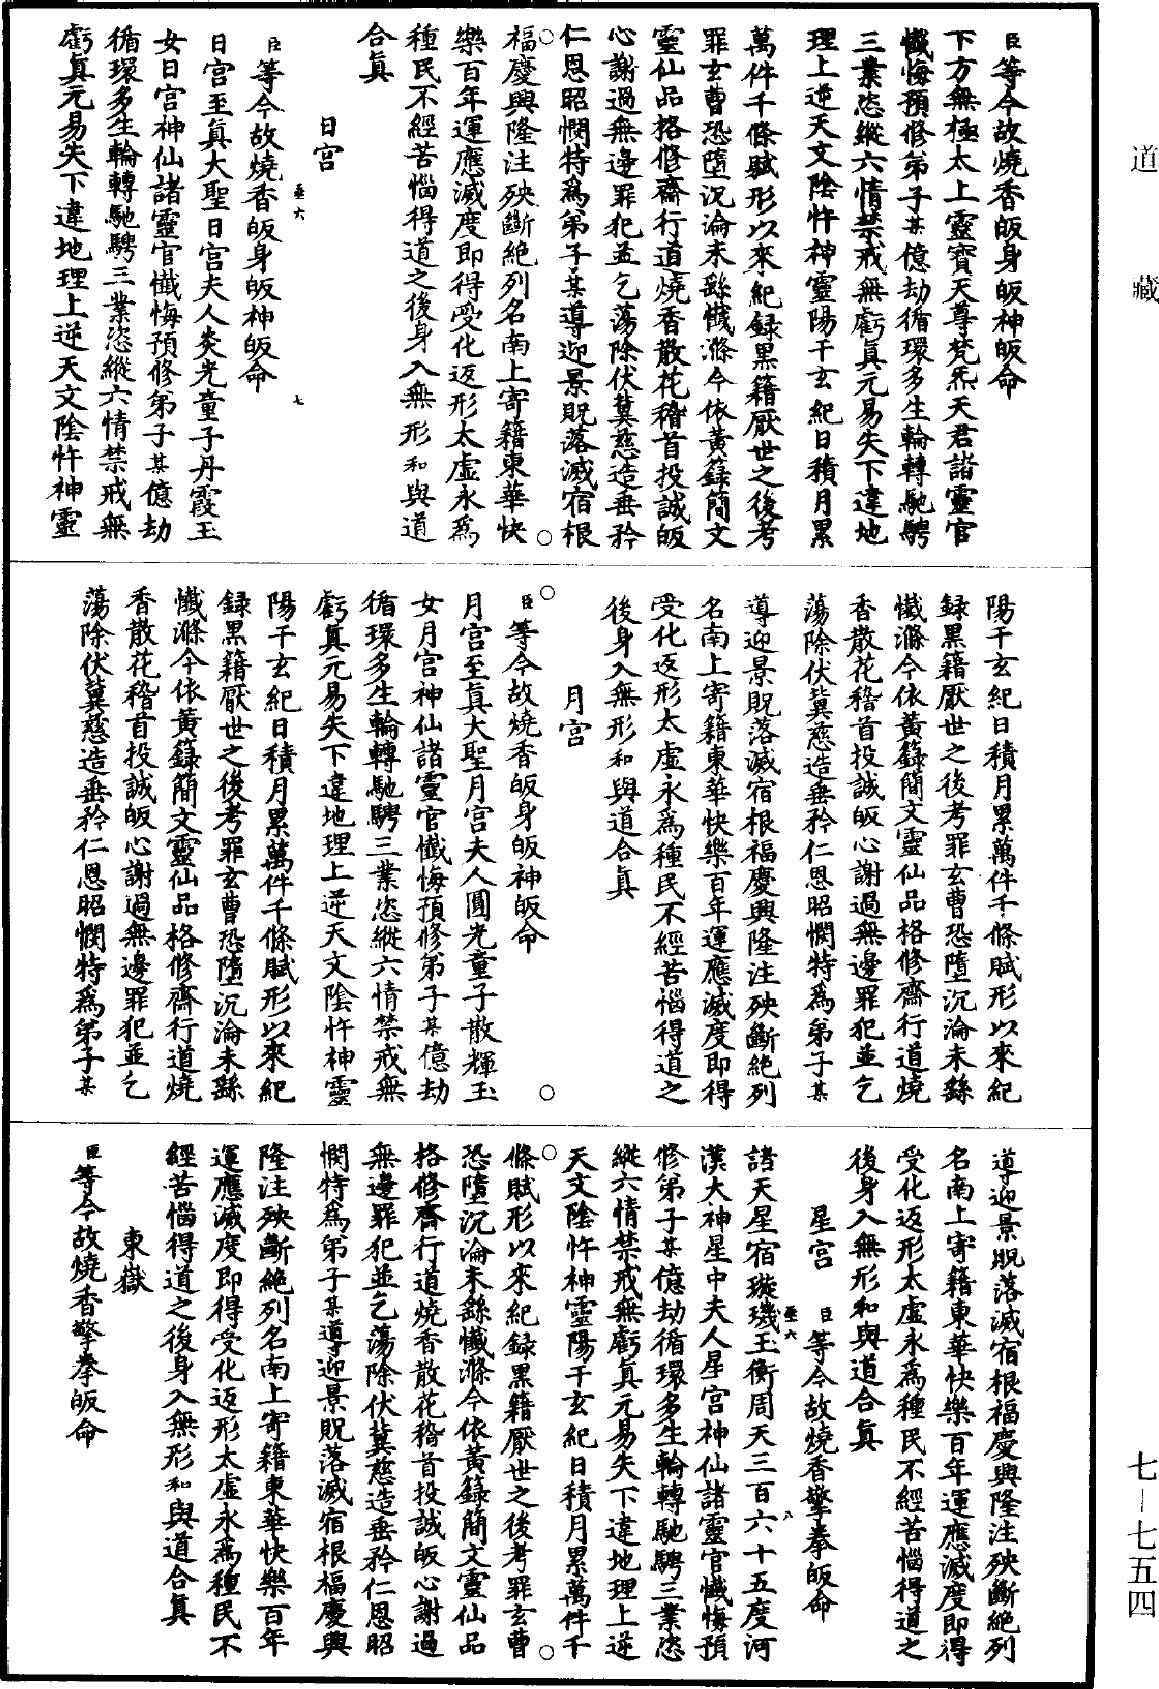 道藏
七—七五四
臣等今故燒香皈身皈神皈命
下方無極太上靈寶天尊梵炁天君諸靈官
懺悔預修弟子某億劫循環多生輪轉馳騁
三業恣縱六情禁戒無虧真元易失下違地
理上逆天文陰忤神靈陽干玄紀日積月累
萬件千條賦形以來紀録黑籍厭世之後考
罪玄曹恐墮沉淪未繇懺滌今依黃籙簡文
靈仙品格修齋行道燒香散花稽首投誠皈
心謝過無邊罪犯並乞蕩除伏冀慈造垂矜
仁恩昭憫特爲弟子某導迎景貺落滅宿根
福慶興隆注殃斷絕列名南上寄籍東華快
樂百年運應滅度即得受化返形太虛永爲
種民不經苦惱得道之後身入無形和與道
合真
日宮
臣等今故燒香皈身皈神皈命
至六 七
日宮至真大聖日宮夫人炎光童子丹霞玉
女日宮神仙諸靈官懺悔預修弟子某億劫
循環多生輪轉馳騁三業恣縱六情禁戒無
虧真元易失下違地理上逆天文陰忤神靈
陽干玄紀日積月累萬件千條賦形以來紀
録黑籍厭世之後考罪玄曹恐墮沉淪未繇
懺滌今依黃籙簡文靈仙品格修齋行道燒
香散花稽首投誠皈心謝過無邊罪犯並乞
蕩除伏冀慈造垂矜仁恩昭憫特爲弟子某
導迎景貺落滅宿根福慶興隆注殃斷絕列
名南上寄籍東華快樂百年運應滅度即得
受化返形太虛永爲種民不經苦惱得道之
後身入無形和與道合真
月宮
臣等今故燒香皈身皈神皈命
月宮至真大聖月宮夫人圓光童子散輝玉
女月宮神仙諸靈官懺悔預修弟子某億劫
循環多生輪轉馳騁三業恣縱六情禁戒無
虧真元易失下違地理上逆天文陰忤神靈
陽干玄紀日積月累萬件千條賦形以來紀
録黑籍厭世之後考罪玄曹恐墮沉淪未繇
懺滌今依黃籙簡文靈仙品格修齋行道燒
香散花稽首投誠皈心謝過無邊罪犯並乞
蕩除伏冀慈造垂矜仁恩昭憫特爲弟子某
導迎景貺落滅宿根福慶興隆注殃斷絕列
名南上寄籍東華快樂百年運應滅度即得
受化返形太虛永爲種民不經苦惱得道之
後身入無形和與道合真
星宮 臣等今故燒香擎拳皈命
至六 八
諸天星宿璇璣玉衡周天三百六十五度河
漢大神星中夫人星宮神仙諸靈官懺悔預
修弟子某億劫循環多生輪轉馳騁三業恣
縱六情禁戒無虧真元易失下違地理上逆
天文陰忤神靈陽干玄紀日積月累萬件千
條賦形以來紀録黑籍厭世之後考罪玄曹
恐墮沉淪未繇懺滌今依黃籙簡文靈仙品
格修齋行道燒香散花稽首投誠皈心謝過
無邊罪犯並乞蕩除伏冀慈造垂矜仁恩昭
憫特爲弟子某導迎景貺落滅宿根福慶興
隆注殃斷絕列名南上寄籍東華快樂百年
運應滅度即得受化返形太虛永爲種民不
經苦惱得道之後身入無形和與道合真
東嶽
臣等今故燒香擎拳皈命